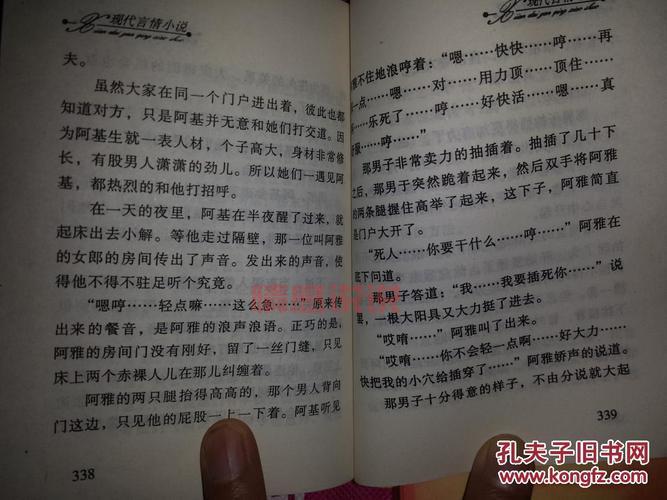 现代言情小说
夫。
虽然大家在同一个门户进出着，彼此也都
知道对方，只是阿基并无意和她们打交道。因
为阿基生就一表人材，个子高大，身材非常修
长，有股男人潇潇的劲儿。所以她们一遇见阿
基，都热烈的和他打招呼。
在一天的夜里，阿基在半夜醒了过来，就
起床出去小解。等他走过隔壁，那一位叫阿雅
的女郎的房间传出了声音。发出来的声音，使
得他不得不驻足听个究竟。
“嗯哼……轻点嘛……这么急……”原来传
出来的餐音，是阿雅的浪声浪语。正巧的是，
阿雅的房间门没有刚好，留了一丝门缝，只见
床上两个赤裸人儿在那儿纠缠着。
阿雅的两只腿抬得高高的，那个男人背向
门这边，只见他的屁股一上一下着。阿基听见
338
现代言情
不住地浪哼着：“嗯……快快……哼……再
一点……嗯……对……用力顶……顶住……
乐死了……哼……好快活……嗯……真
……哼……”
那男子非常卖力的抽插着。抽插了几十下
之后，那男于突然跪着起来，然后双手将阿雅
的两条腿握住高举了起来，这下子，阿雅简直
是门户大开了。
“死人……你要干什么……哼……”阿雅在
底下问道。
那男子答道：“我……我要插死你……”说
罢，一根大阳具又大力挺了进去。
“哎唷……”阿雅叫了出来。
“哎唷……你不会轻一点啊……好大力……
快把我的小穴给插穿了……”阿雅娇声的说道。
那男子十分得意的样子，不由分说就大起
339
孔夫子旧书网